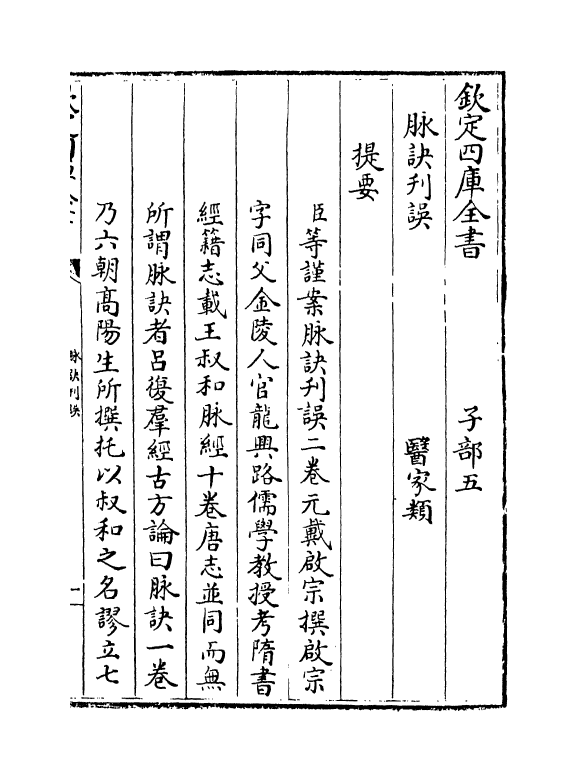 欽定四庫全書　子部五
脉訣刋誤　醫家類
提要
臣等謹案脉訣刋誤二卷元戴啟宗撰啟宗
字同父金陵人官龍興路儒學教授考隋書
經籍志載王叔和脉經十卷唐志並同而無
所謂脉訣者吕復羣經古方論曰脉訣一卷
乃六朝髙陽生所撰托以叔和之名謬立七
脉訣刋誤
一